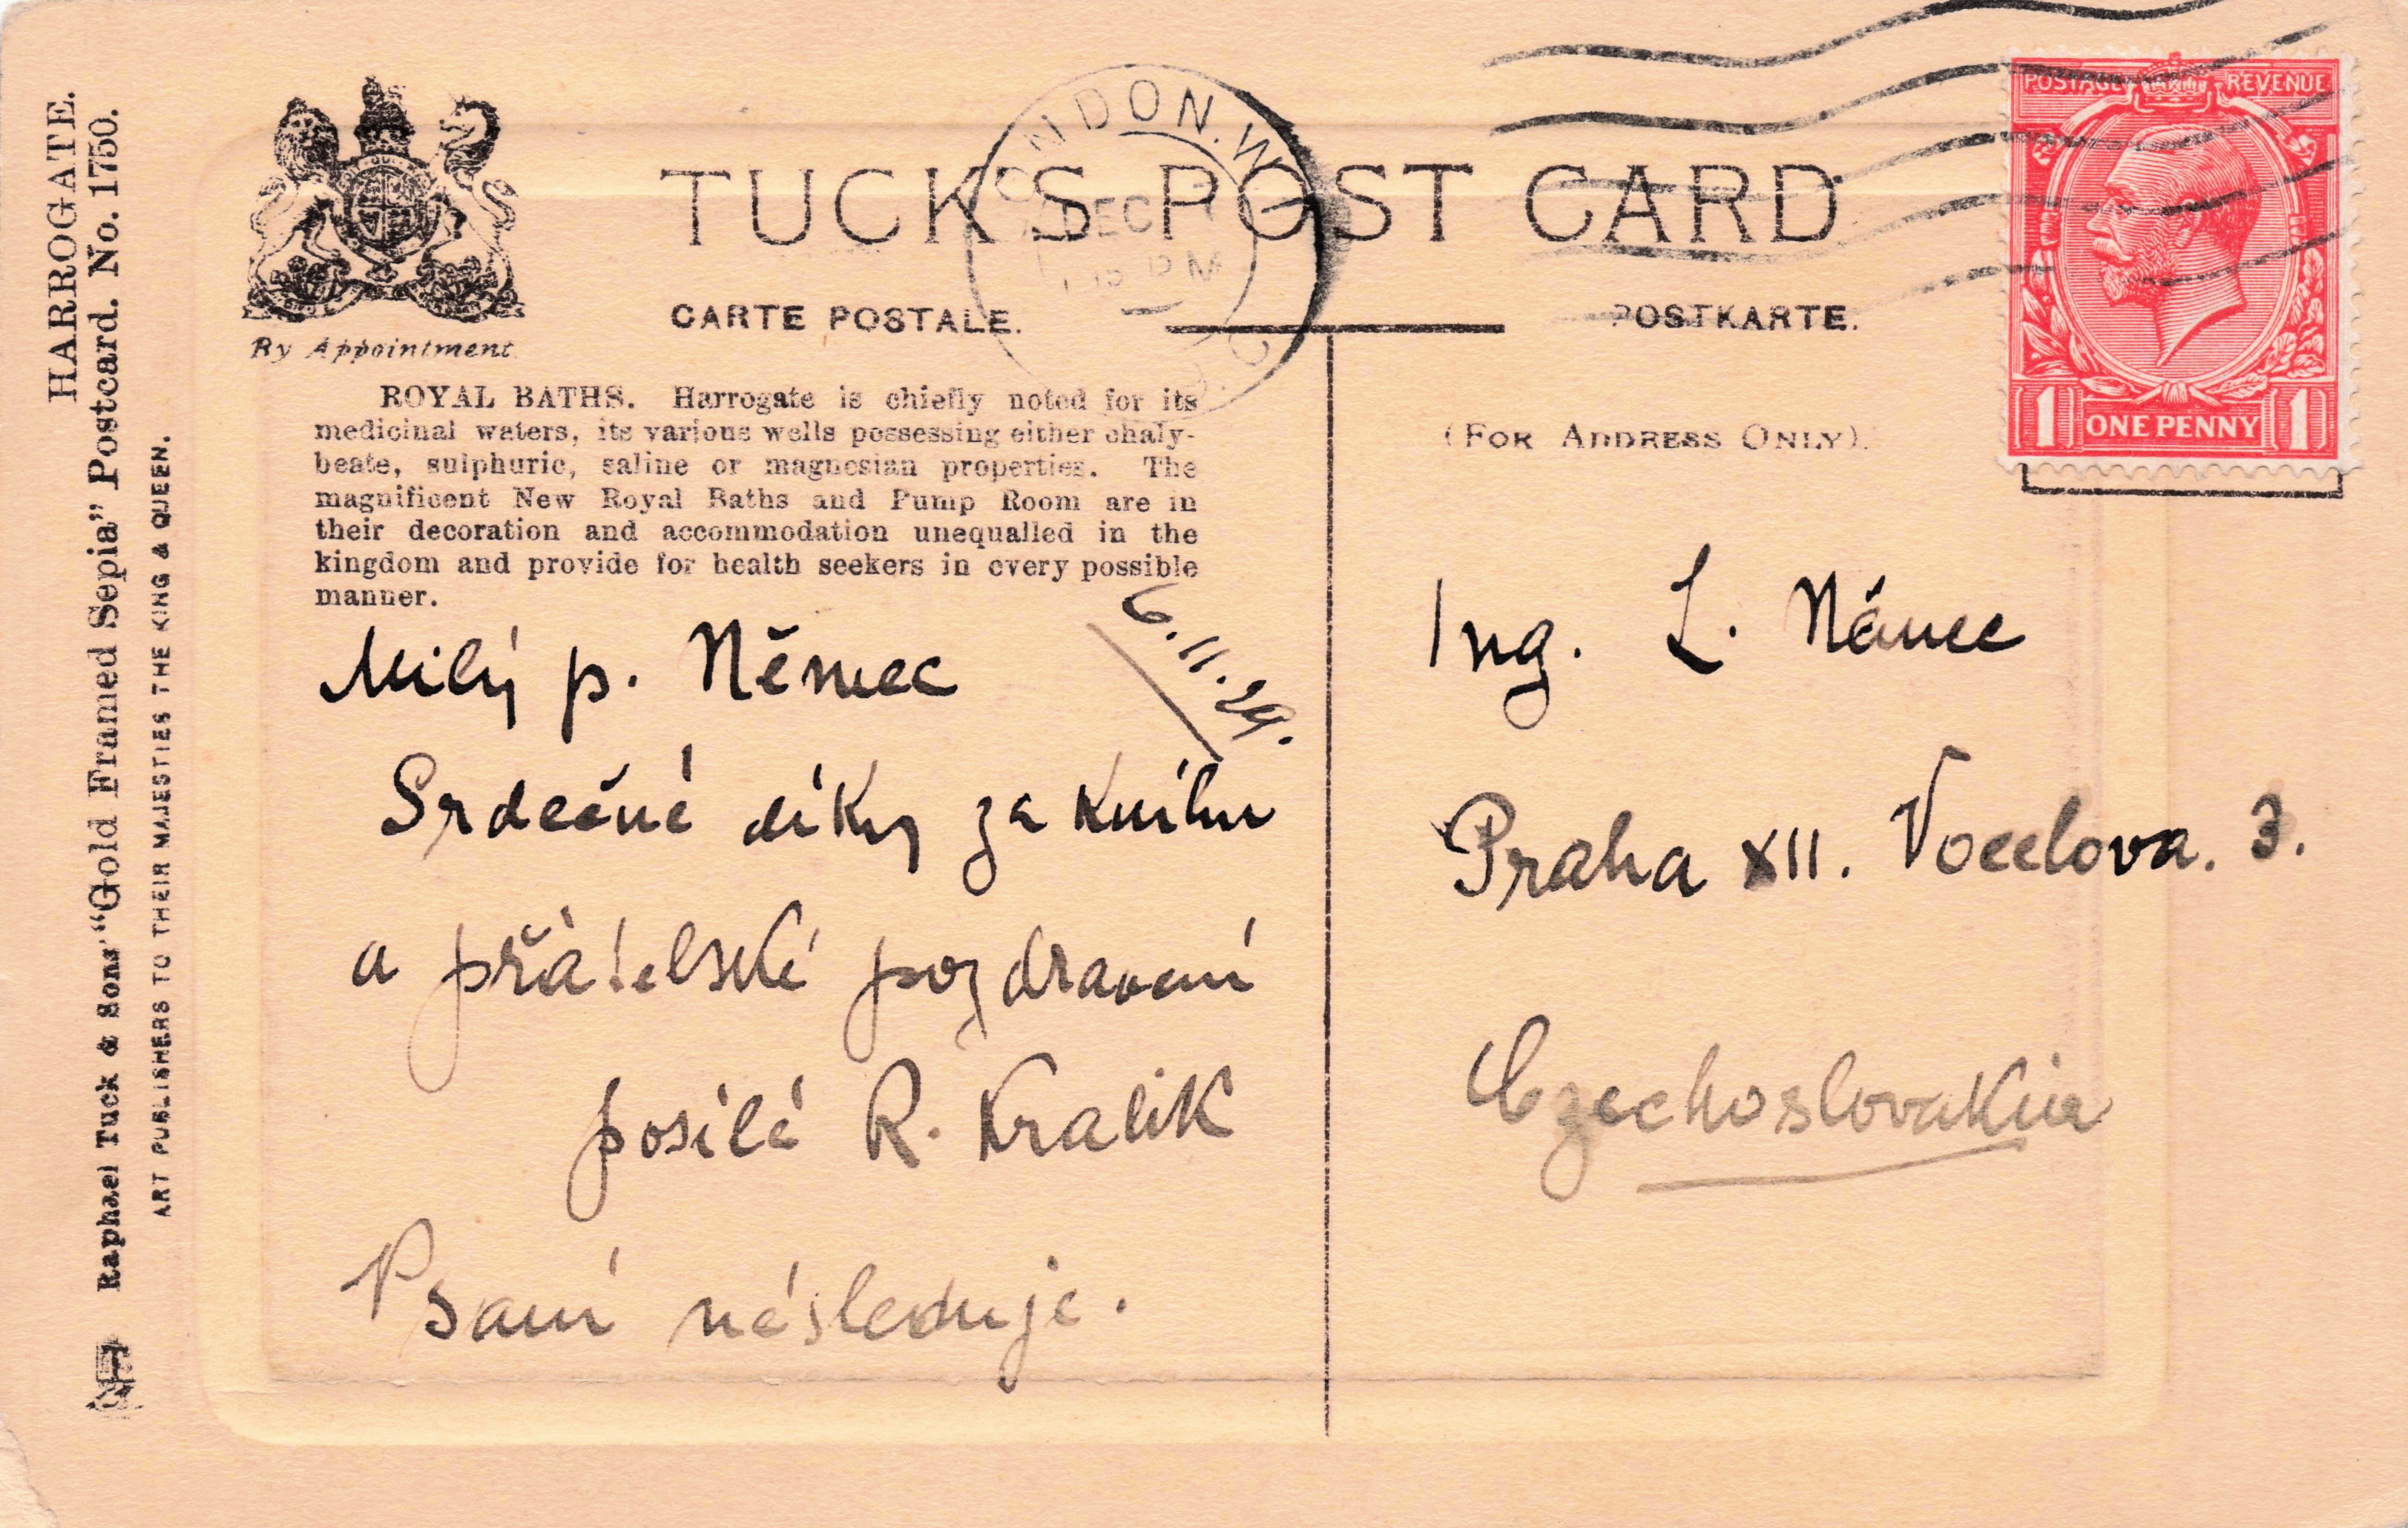 HARROGATE.
Raphael Tuck & Sons' "Gold Framed Sepia" Postcard. No. 1750.
ART PUBLISHERS TO THEIR MAJESTIES THE KING & QUEEN.
By Appointment
TUCK'S POST CARD
CARTE POSTALE.
POSTKARTE.
LONDON.W
DEC
PM
POSTAGE REVENUE
1 ONE PENNY 1
(FOR ADDRESS ONLY).
ROYAL BATHS. Harrogate is chiefly noted for its
medicinal waters, its various wells possessing either chaly-
beate, sulphuric, saline or magnesian properties. The
magnificent New Royal Baths and Pump Room are in
their decoration and accommodation unequalled in the
kingdom and provide for health seekers in every possible
manner.
6.11.29.
Milý p. Němec
Srdečné díky za knihu
a přátelské pozdravení
posílá R. Kralik
Psaní následuje.
Ing. L. Němec
Praha XII. Vocelova. 3.
Czechoslovakia